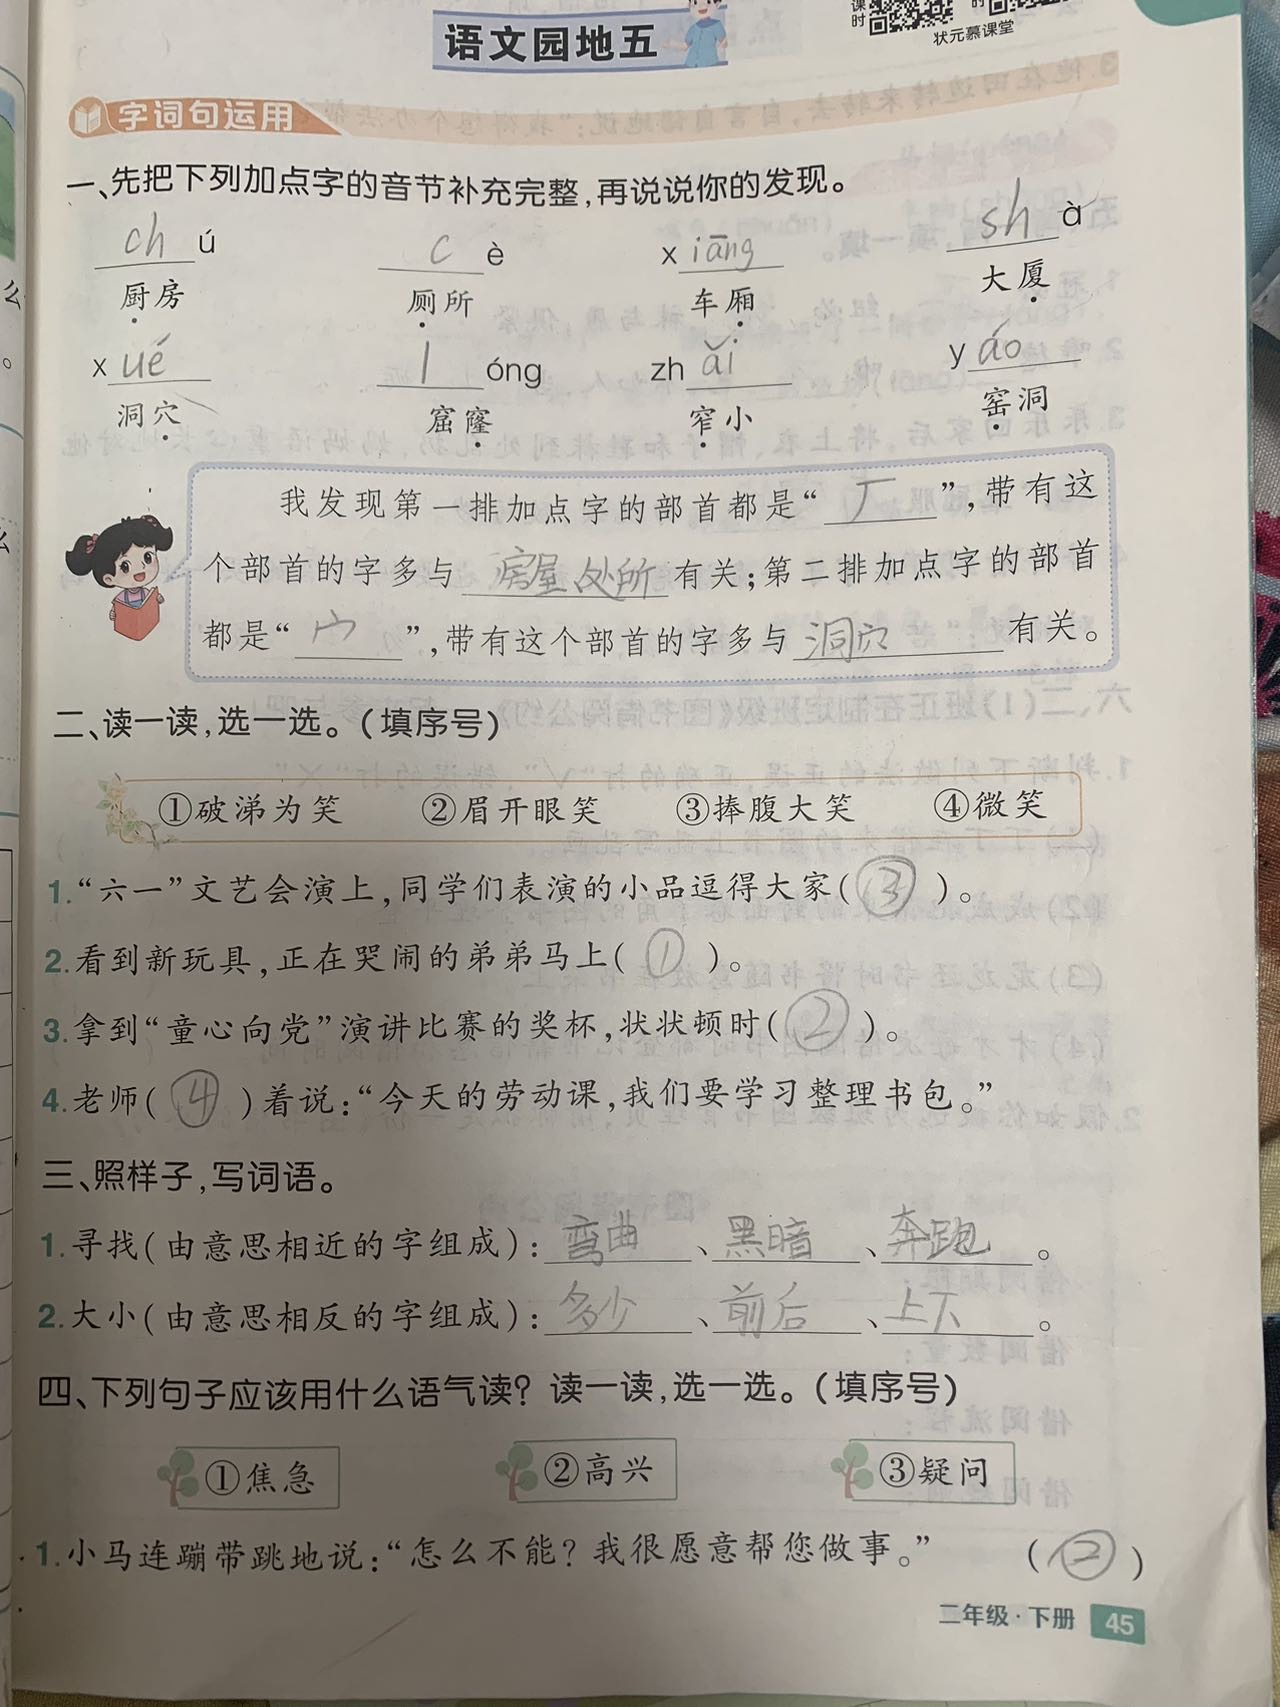 语文园地五
课时
时
状元慕课堂
字词句运用
一、先把下列加点字的音节补充完整,再说说你的发现。
ch ú c è x iāng sh à
厨房 厕所 车厢 大厦
x ué l óng zh ǎi y áo
洞穴 窟窿 窄小 窑洞
我发现第一排加点字的部首都是“厂”,带有这
个部首的字多与房屋处所有关;第二排加点字的部首
都是“穴”,带有这个部首的字多与洞穴有关。
二、读一读,选一选。(填序号)
①破涕为笑 ②眉开眼笑 ③捧腹大笑 ④微笑
1.“六一”文艺会演上,同学们表演的小品逗得大家(③)。
2.看到新玩具,正在哭闹的弟弟马上(①)。
3.拿到“童心向党”演讲比赛的奖杯,状状顿时(②)。
4.老师(④)着说:“今天的劳动课,我们要学习整理书包。”
三、照样子,写词语。
1.寻找(由意思相近的字组成):弯曲、黑暗、奔跑。
2.大小(由意思相反的字组成):多少、前后、上下。
四、下列句子应该用什么语气读?读一读,选一选。(填序号)
①焦急 ②高兴 ③疑问
1.小马连蹦带跳地说:“怎么不能?我很愿意帮您做事。” (②)
二年级·下册 45